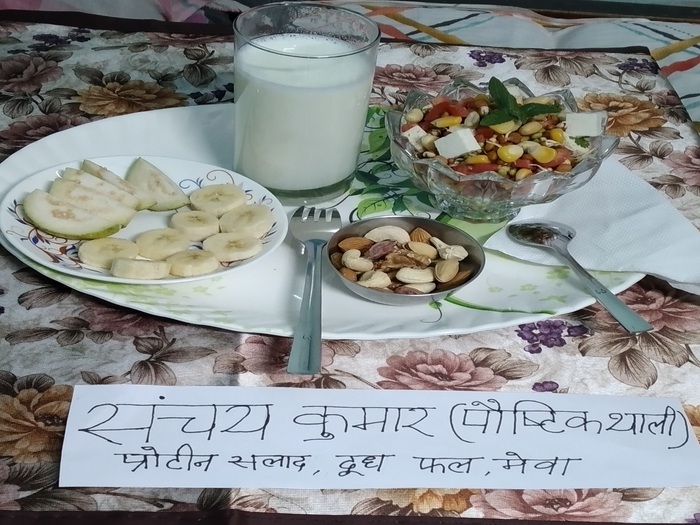 संचय कुमार (पौष्टिक थाली)
प्रोटीन सलाद, दूध फल, मेवा